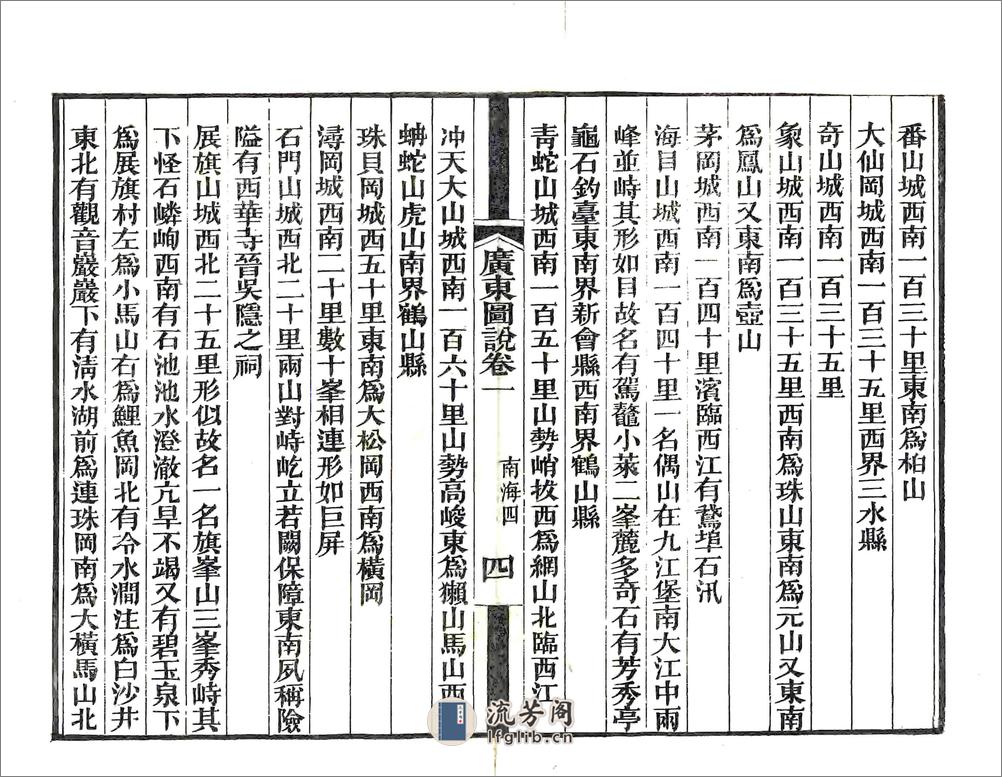 番山城西南一百三十里東南爲柏山
大仙岡城西南一百三十五里西界三水縣
奇山城西南一百三十五里
象山城西南一百三十五里西南爲珠山東南爲元山又東南
爲鳳山又東南爲壺山
茅岡城西南一百四十里濱臨西江有鵞埠石汛
海目山城西南一百四十里一名偶山在九江堡南大江中兩
峰並峙其形如目故名有駕鼇小萊二峯麓多奇石有芳秀亭
龜石釣臺東南界新會縣西南界鶴山縣
靑蛇山城西南一百五十里山勢峭拔西爲網山北臨西江
廣東圖說卷一
南海四
四
冲天大山城西南一百六十里山勢高峻東爲獺山馬山西
蚺蛇山虎山南界鶴山縣
珠貝岡城西五十里東南爲大松岡西南爲橫岡
潯岡城西南二十里數十峯相連形如巨屏
石門山城西北二十里兩山對峙屹立若闕保障東南夙稱險
隘有西華寺晉吳隱之祠
展旗山城西北二十五里形似故名一名旗峯山三峯秀峙其
下怪石嶙峋西南有石池池水澄澈亢旱不竭又有碧玉泉下
爲展旗村左爲小馬山右爲鯉魚岡北有冷水澗注爲白沙井
東北有觀音巖巖下有淸水湖前爲連珠岡南爲大橫馬山北
流芳阁
lfglib.cn